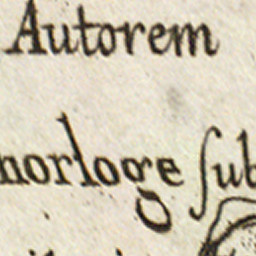 Autorem
norloge ſub